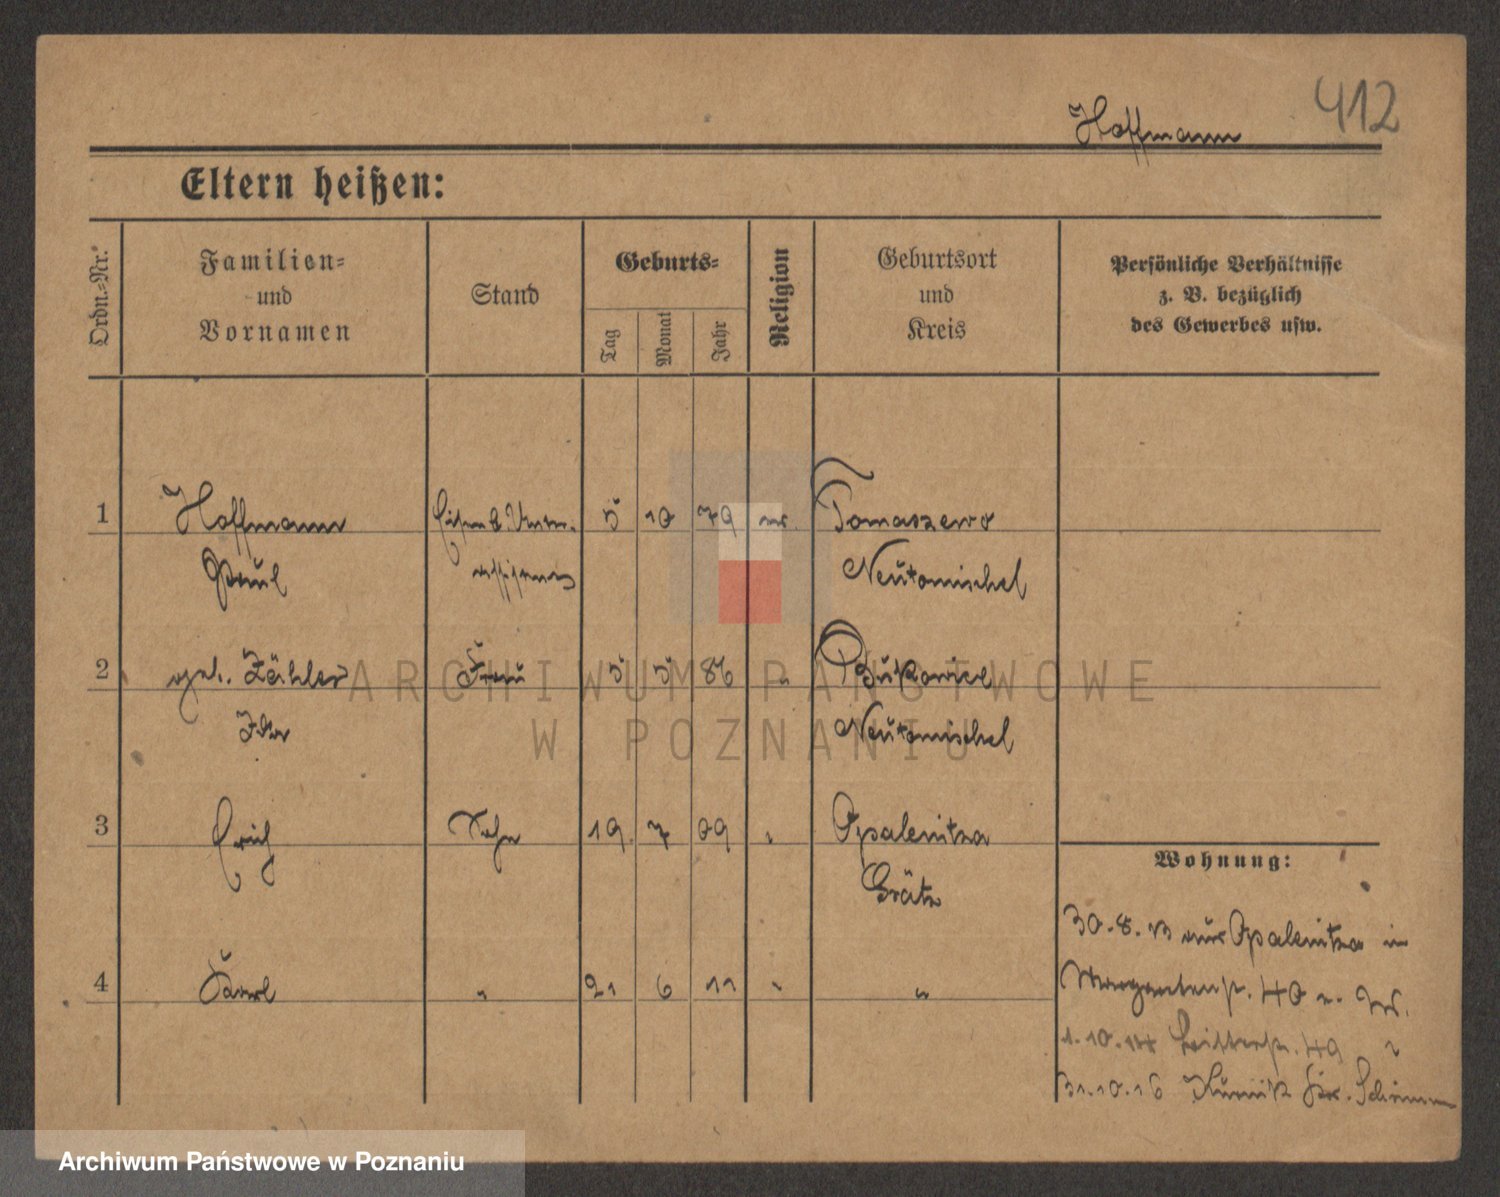 412
Hoffmann
Eltern heißen:
Ordn.-Nr.
Familien-
und
Vornamen
Stand
Geburts-
Tag
Monat
Jahr
Religion
Geburtsort
und
Kreis
Persönliche Verhältnisse
z. B. bezüglich
des Gewerbes usw.
1 Hoffmann 5 10 79 Tomaszewo
Paul Neutomischel
2 geb. Zähler Frau 5 5 86 " Bukowiec
Ida Neutomischel
3 Erich Sohn 19. 7 09 " Opalenitza
Grätz
4 Karl " 21 6 11 " "
Wohnung:
30.8.13 aus Opalenitza in
40
1.10.14 49 "
31.10.16 Kurnik Kr. Schrimm
ARCHIWUM PAŃSTWOWE
W POZNANIU
Archiwum Państwowe w Poznaniu